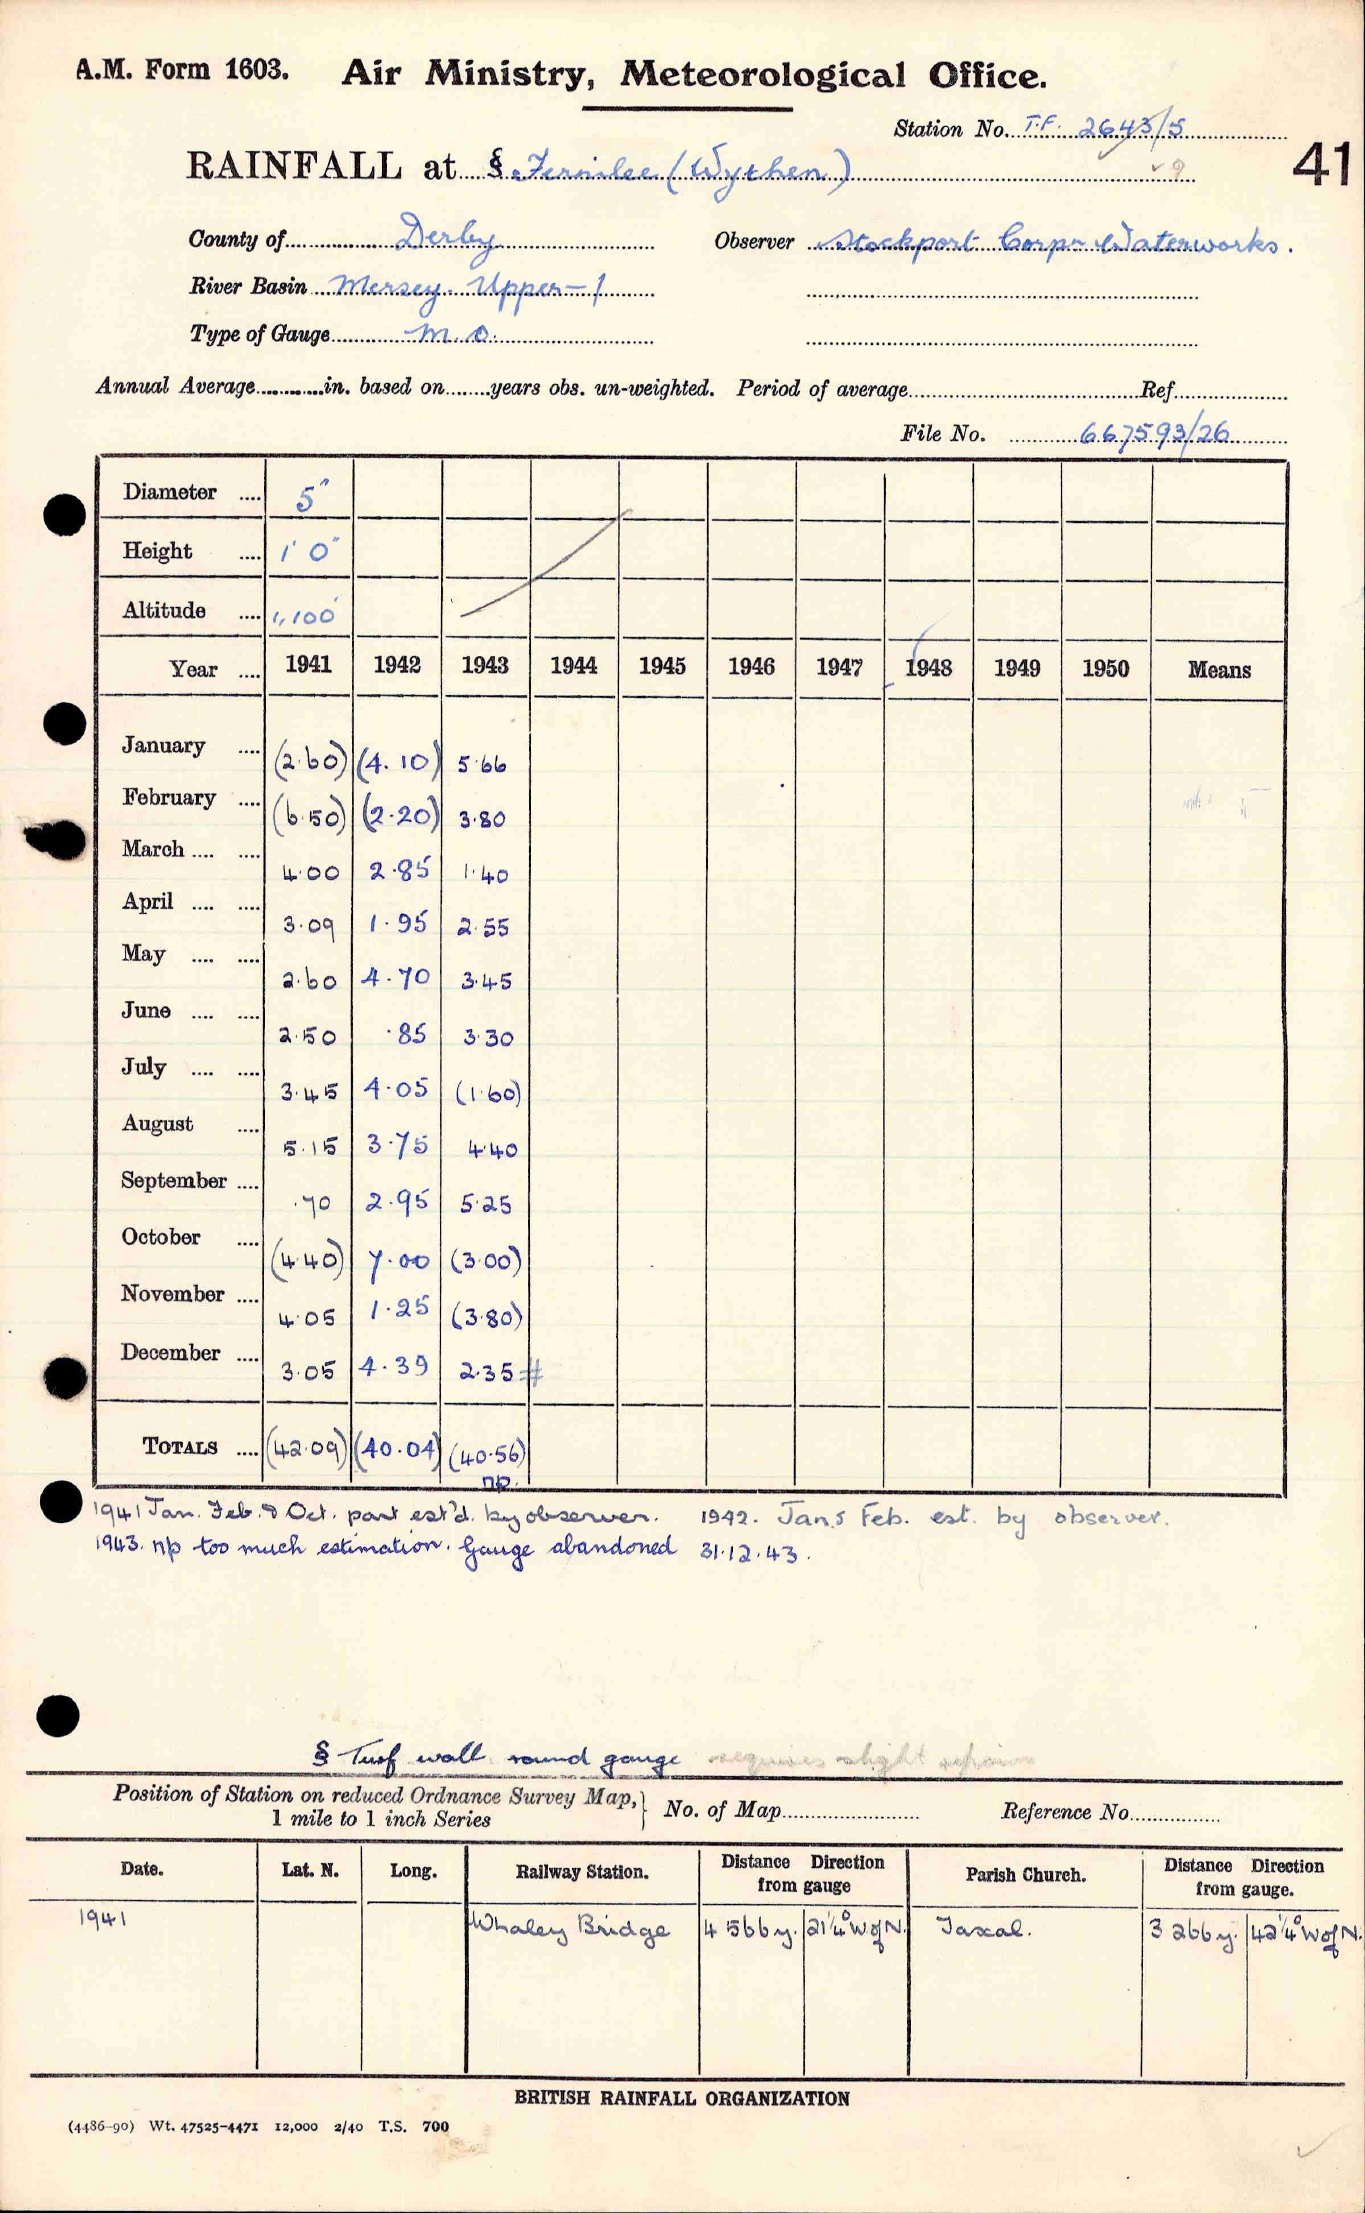 A.M. Form 1603. Air Ministry, Meteorological Office.
Station No. T.F. 2643/5
41
RAINFALL at § Fernilee (Wythen)
County of Derby Observer Stockport Corpn Waterworks.
River Basin Mersey. Upper-1
Type of Gauge M.O.
Annual Average in. based on years obs. un-weighted. Period of average Ref
File No. 667593/26
Diameter .... 5"
Height .... 1' 0"
Altitude .... 1,100'
Year .... 1941 1942 1943 1944 1945 1946 1947 1948 1949 1950 Means
January .... (2.60) (4.10) 5.66
February .... (6.50) (2.20) 3.80
March .... .... 4.00 2.85 1.40
April .... .... 3.09 1.95 2.55
May .... .... 2.60 4.70 3.45
June .... .... 2.50 .85 3.30
July .... .... 3.45 4.05 (1.60)
August .... 5.15 3.75 4.40
September .... .70 2.95 5.25
October .... (4.40) 7.00 (3.00)
November .... 4.05 1.25 (3.80)
December .... 3.05 4.39 2.35 #
TOTALS .... (42.09) (40.04) (40.56)
np.
1941 Jan. Feb. & Oct. part est'd. by observer. 1942. Jan & Feb. est. by observer.
1943. np too much estimation. Gauge abandoned 31.12.43.
§ Turf wall round gauge requires slight repairs
Position of Station on reduced Ordnance Survey Map,} No. of Map Reference No
1 mile to 1 inch Series
Date. Lat. N. Long. Railway Station. Distance from gauge Direction Parish Church. Distance from gauge. Direction
1941 Whaley Bridge 4 566 y. 21¼° W of N. Taxal. 3 266 y. 42¼° W of N.
BRITISH RAINFALL ORGANIZATION
(4486-90) Wt. 47525-4471 12,000 2/40 T.S. 700